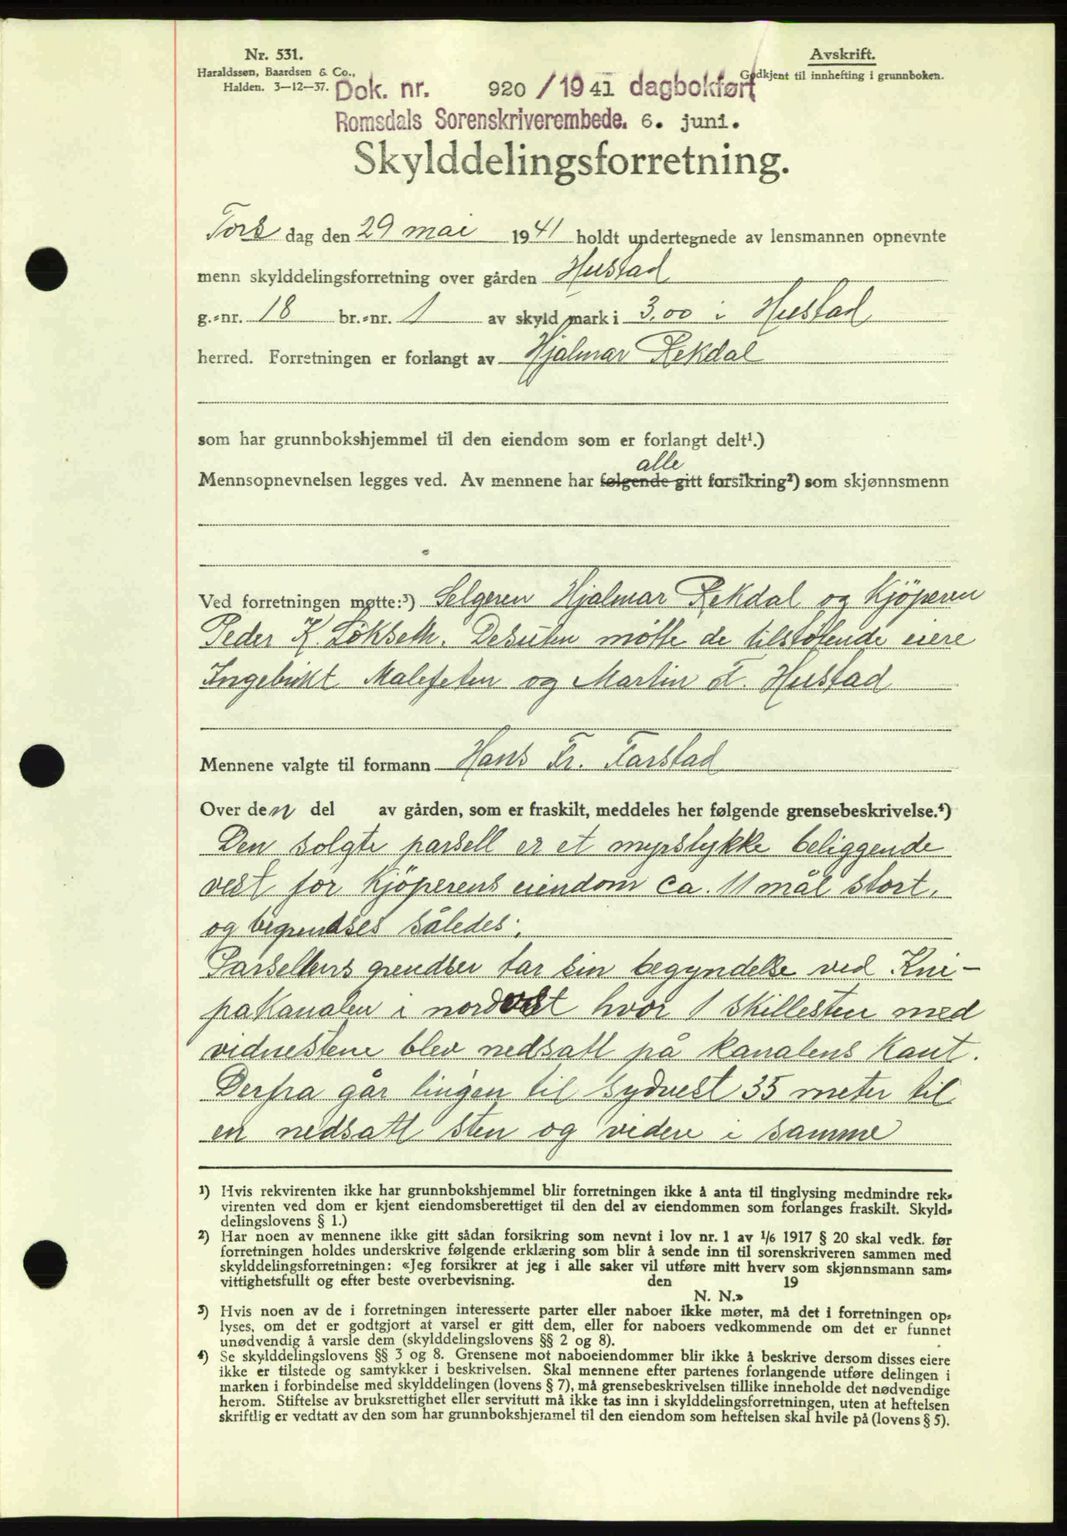 Nr. 531.
Haraldssøn, Baardsen & Co.,
Halden. 3–12–37.
Avskrift.
Godkjent til innhefting i grunnboken.
Dok. nr. 920 / 19 41 dagbokført
Romsdals Sorenskriverembede. 6. juni.
Skylddelingsforretning.
Tors dag den 29 mai 19 41 holdt undertegnede av lensmannen opnevnte
menn skylddelingsforretning over gården Hustad
g.-nr. 18 br.-nr. 1 av skyld mark i 3,00 i Hustad
herred. Forretningen er forlangt av Hjalmar Rekdal
som har grunnbokshjemmel til den eiendom som er forlangt delt¹.)
alle
Mennsopnevnelsen legges ved. Av mennene har følgende gitt forsikring²) som skjønnsmenn
Ved forretningen møtte:³) Selgeren Hjalmar Rekdal og Kjöperen
Peder K. Løkseth. Desuten møtte de tilstøtende eiere
Ingebrikt Malefeten og Martin T. Hustad
Mennene valgte til formann Hans Fr. Farstad
Over den del av gården, som er fraskilt, meddeles her følgende grensebeskrivelse.⁴)
Den solgte parsell er et myrstykke beliggende
vest for Kjöperens eiendom ca. 11 mål stort,
og begrendses således:
Parsellens grendser tar sin begyndelse ved Kni-
pakanalen i nordvest hvor 1 skillesten med
vidnestene blev nedsatt på kanalens kant.
Derfra går linjen til sydvest 35 meter til
en nedsatt sten og videre i samme
¹) Hvis rekvirenten ikke har grunnbokshjemmel blir forretningen ikke å anta til tinglysing medmindre rek-
virenten ved dom er kjent eiendomsberettiget til den del av eiendommen som forlanges fraskilt. Skyld-
delingslovens § 1.)
²) Har noen av mennene ikke gitt sådan forsikring som nevnt i lov nr. 1 av 1/6 1917 § 20 skal vedk. før
forretningen holdes underskrive følgende erklæring som blir å sende inn til sorenskriveren sammen med
skylddelingsforretningen: «Jeg forsikrer at jeg i alle saker vil utføre mitt hverv som skjønnsmann sam-
vittighetsfullt og efter beste overbevisning. den 19
N. N.»
³) Hvis noen av de i forretningen interesserte parter eller naboer ikke møter, må det i forretningen op-
lyses, om det er godtgjort at varsel er gitt dem, eller for naboers vedkommende om det er funnet
unødvendig å varsle dem (skylddelingslovens §§ 2 og 8).
⁴) Se skylddelingslovens §§ 3 og 8. Grensene mot naboeiendommer blir ikke å beskrive dersom disses eiere
ikke er tilstede og samtykker i beskrivelsen. Skal mennene efter partenes forlangende utføre delingen i
marken i forbindelse med skylddelingen (lovens § 7), må grensebeskrivelsen tillike inneholde det nødvendige
herom. Stiftelse av bruksrettighet eller servitutt må ikke tas inn i skylddelingsforretningen, uten at heftelsen
skriftlig er vedtatt av den som har grunnbokshjemmel til den eiendom som heftelsen skal hvile på (lovens § 5).